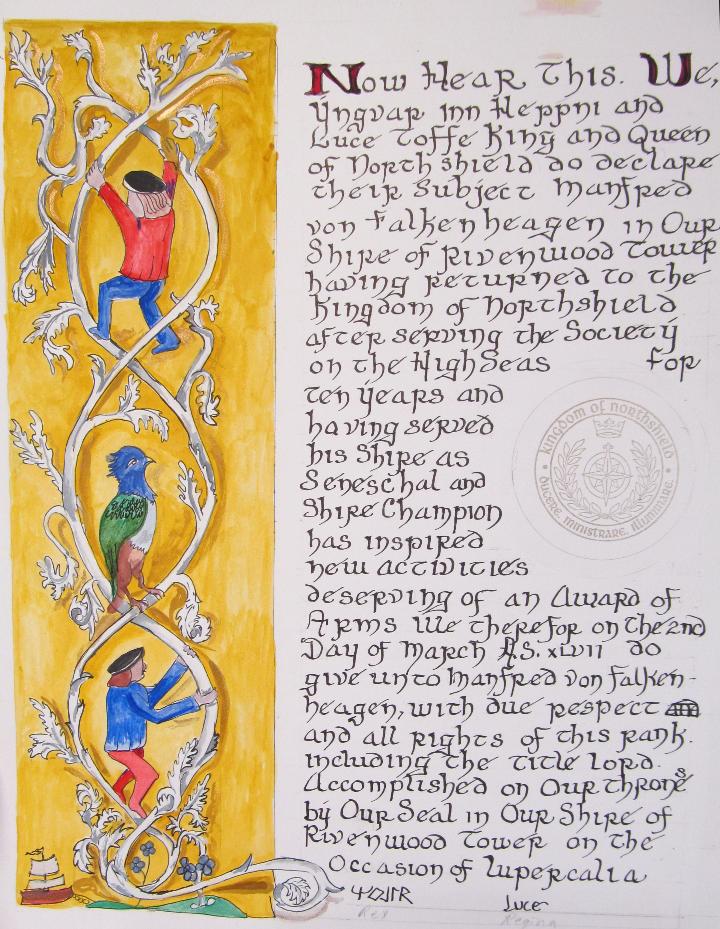 Now Hear This. We,
Yngvar inn Heppni and
Luce Toffe King and Queen
of Northshield do declare
their Subject Manfred
von Falkenheagen in Our
Shire of Rivenwood Tower
having returned to the
Kingdom of Northshield
after serving the Society
on the High Seas for
ten years and
having served
his Shire as
Seneschal and
Shire Champion
has inspired
new activities
deserving of an Award of
Arms We therefor on the 2nd
Day of March A.S. xlvii do
give unto Manfred von Falken-
heagen, with due respect
and all rights of this rank.
including the title lord.
Accomplished on Our thrones
by Our Seal in Our Shire of
Rivenwood Tower on the
Occasion of Lupercalia
Luce
Rex
Regina
kingdom of northshield
ducere, ministrare, illuminare